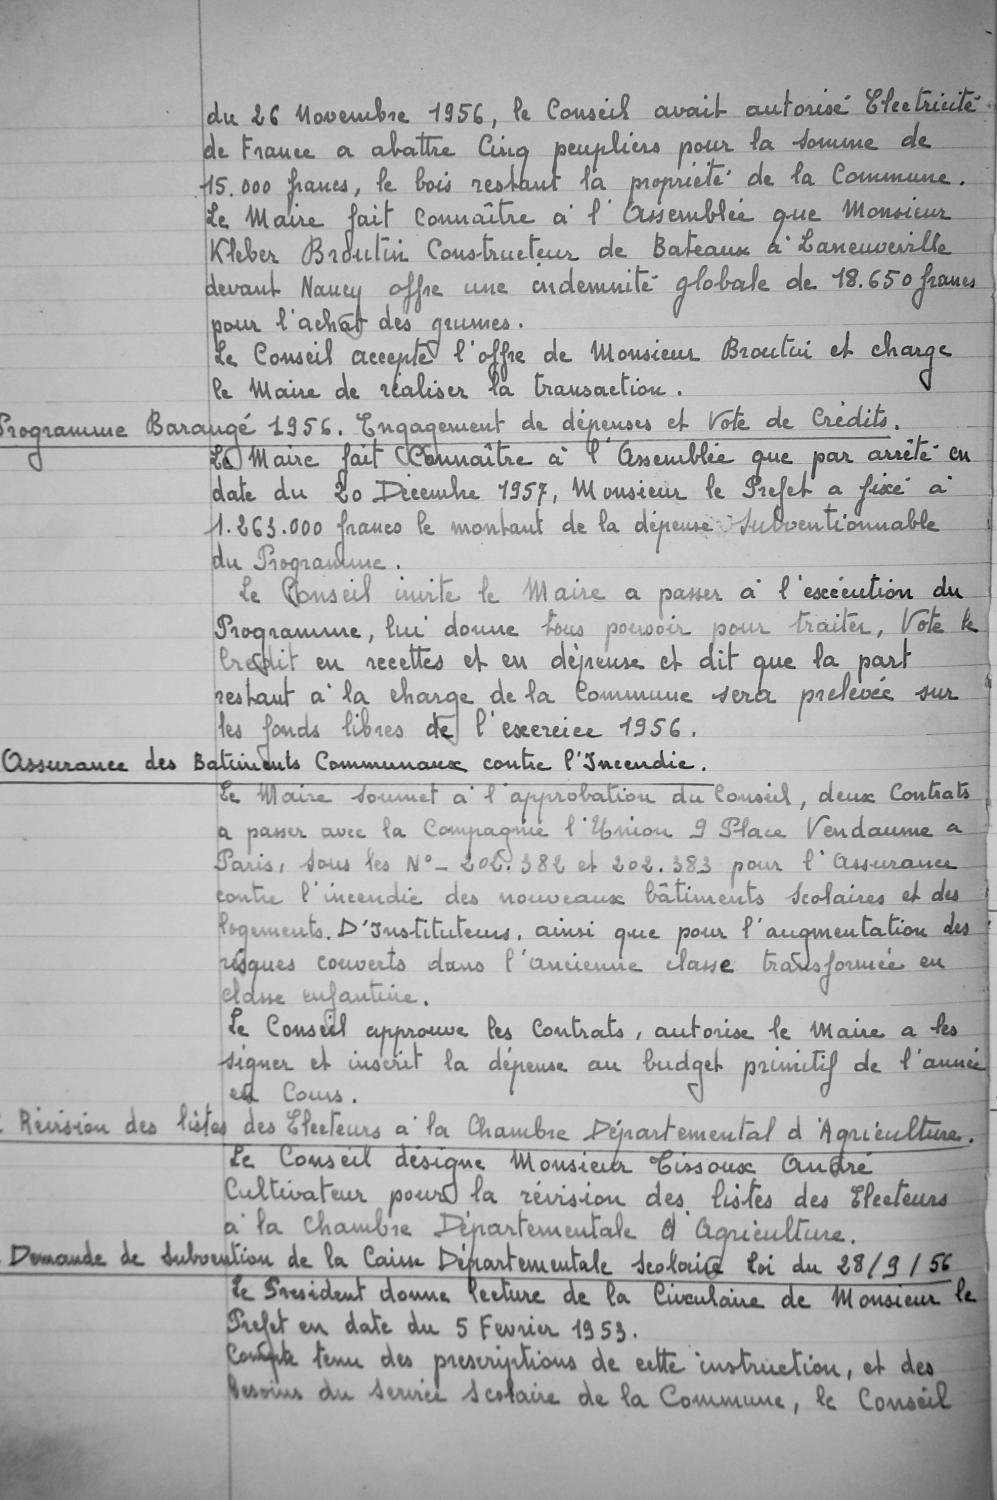 du 26 Novembre 1956, le Conseil avait autorisé Electricité
de France a abattre Cinq peupliers pour la somme de
15.000 francs, le bois restant la propriété de la Commune.
Le Maire fait Connaître à l'Assemblée que Monsieur
Kleber Broutin Constructeur de Bateaux à Laneuveville
devant Nancy offre une indemnité globale de 18.650 francs
pour l'achat des grumes.
Le Conseil accepte l'offre de Monsieur Broutin et charge
le Maire de réaliser la transaction.
Programme Barangé 1956. Engagement de dépenses et Vote de Crédits.
Le Maire fait Connaître à l'Assemblée que par arrêté en
date du 20 Décembre 1957, Monsieur le Préfet a fixé à
1.263.000 francs le montant de la dépense Subventionnable
du Programme.
Le Conseil invite le Maire a passer à l'exécution du
Programme, lui donne tous pouvoir pour traiter, Vote le
Crédit en recettes et en dépense et dit que la part
restant à la charge de la Commune sera prelevée sur
les fonds libres de l'exercice 1956.
Assurance des Batiments Communaux contre l'Incendie.
Le Maire soumet à l'approbation du Conseil, deux Contrats
a passer avec la Compagnie l'Union 9 Place Vendaume a
Paris, sous les N° - 202.382 et 202.383 pour l'Assurance
contre l'incendie des nouveaux bâtiments Scolaires et des
logements. D'Instituteurs, ainsi que pour l'augmentation des
risques couverts dans l'ancienne classe transformée en
classe enfantine.
Le Conseil approuve les Contrats, autorise le Maire a les
signer et inscrit la dépense au budget primitif de l'année
en Cours.
Révision des listes des Electeurs à la Chambre Départemental d'Agriculture.
Le Conseil désigne Monsieur Tissoux André
Cultivateur pour la révision des listes des Electeurs
à la Chambre Départementale d'Agriculture.
Demande de Subvention de la Caisse Départementale Scolaire Loi du 28/9/56
Le President donne lecture de la Circulaire de Monsieur le
Préfet en date du 5 Fevrier 1953.
Compte tenu des prescriptions de cette instruction, et des
besoins du service Scolaire de la Commune, le Conseil